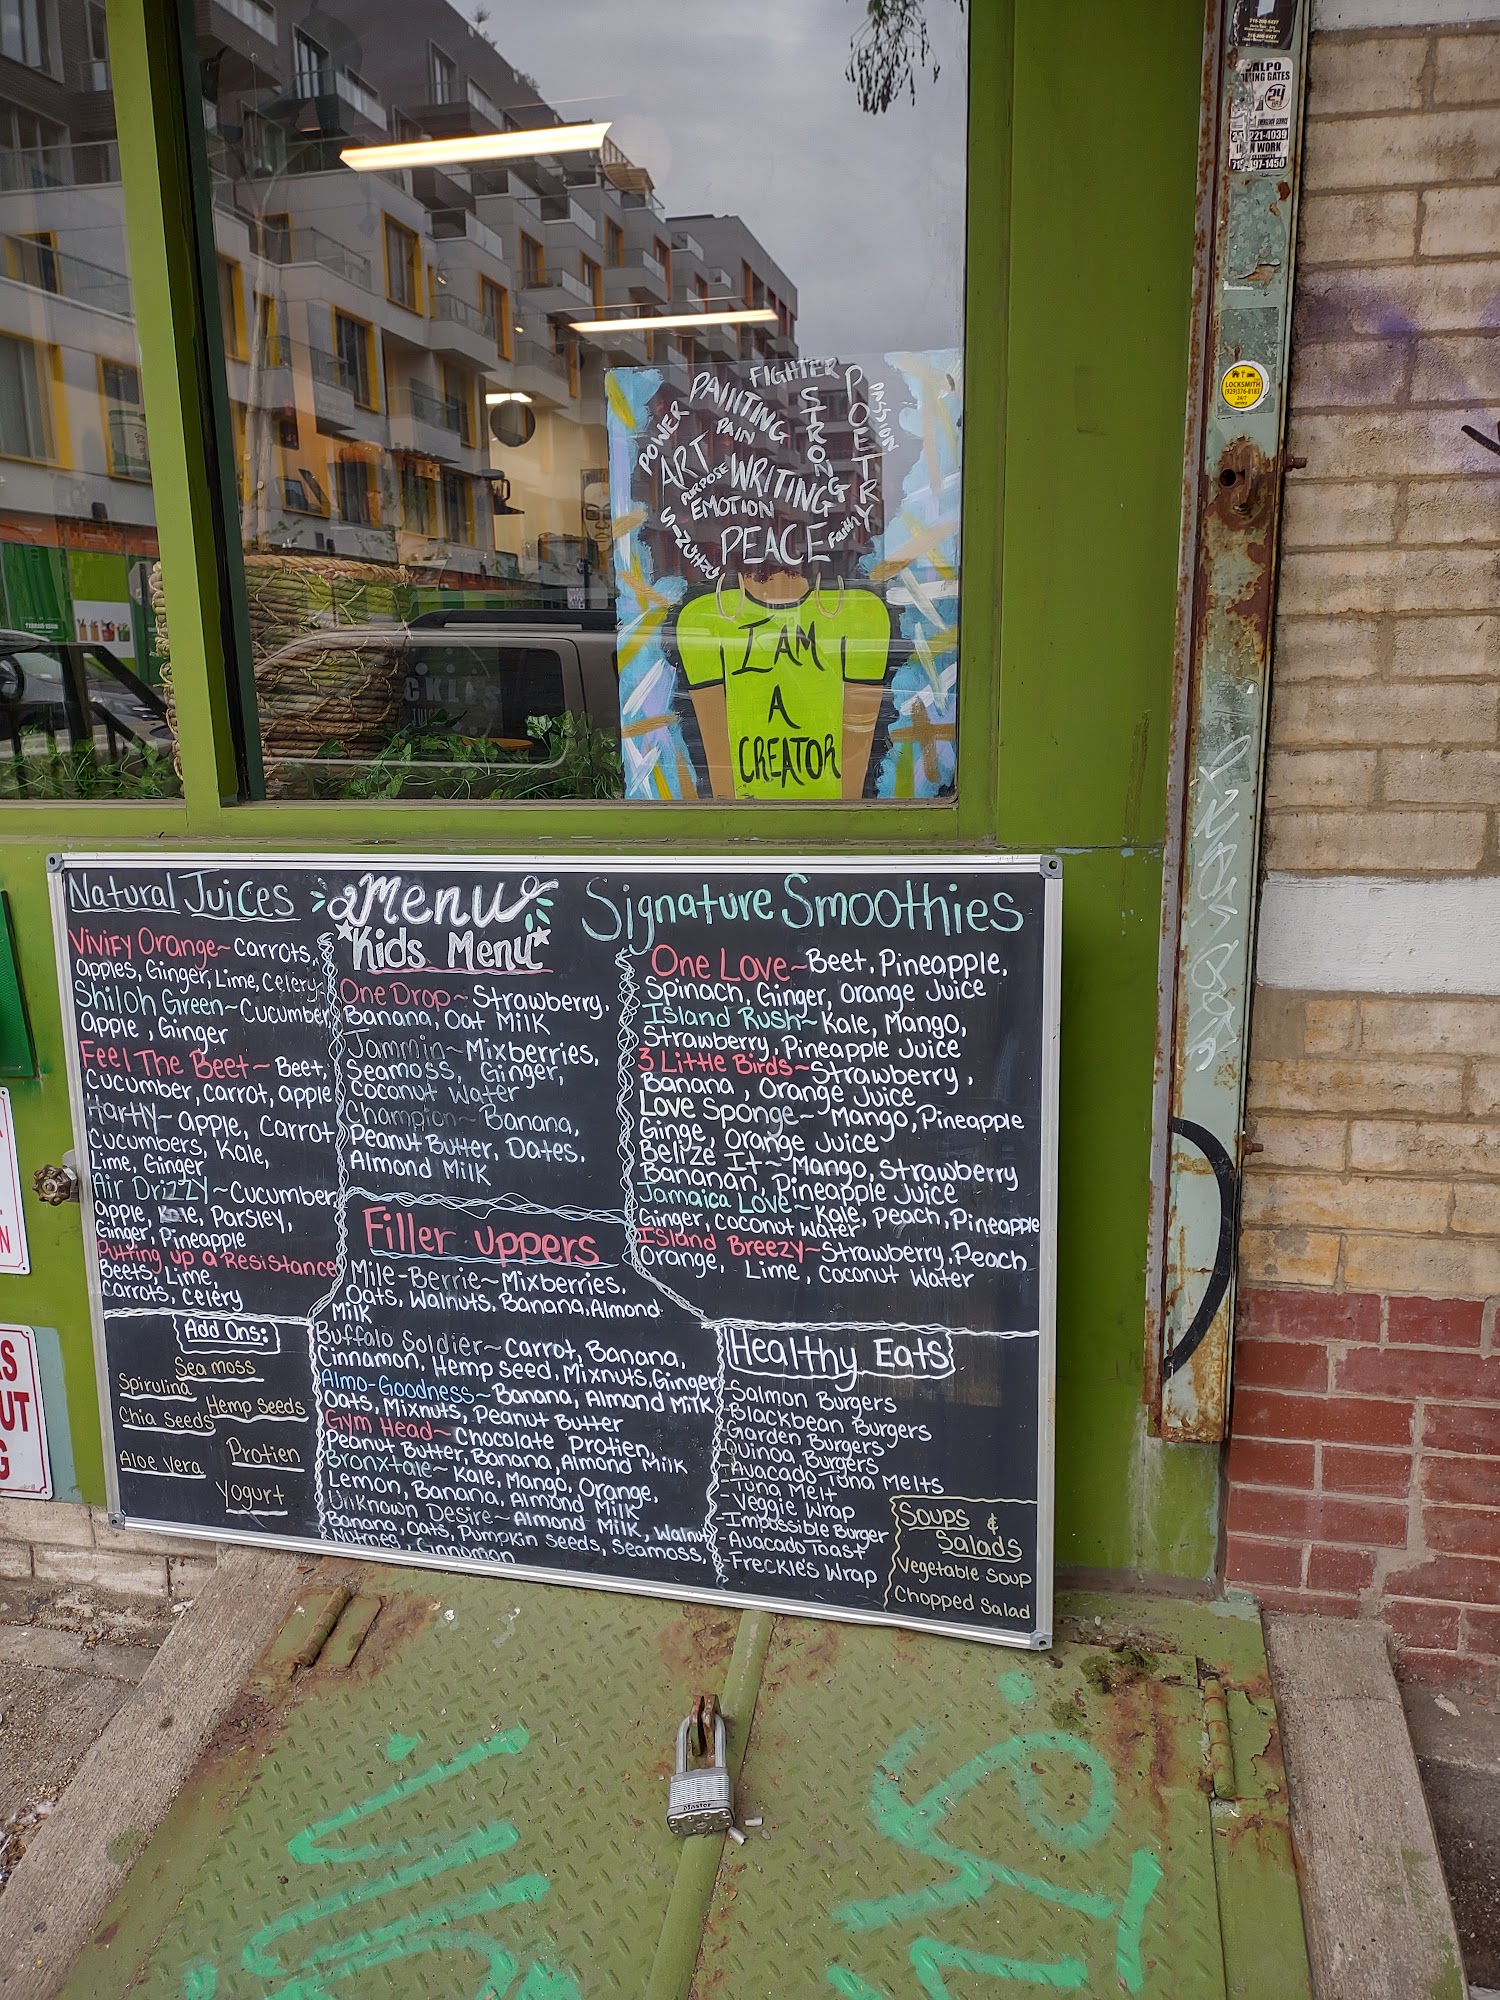 ALPO
24
221-4039
IRON WORK
LOCKSMITH
(929)376-8183
24/7
FIGHTER
STRONG
POETRY
PASSION
PAINTING
PAIN
POWER
ART
PURPOSE
WRITING
EMOTION
PEACE
Faith
I AM
A
CREATOR
Natural Juices
Vivify Orange~ Carrots,
apples, Ginger, Lime, Celery
Shiloh Green~ Cucumber
apple, Ginger
Feel The Beet~ Beet,
Cucumber, Carrot, apple
Harty~ apple, Carrot
Cucumbers, Kale,
Lime, Ginger
Air Drizzy~ Cucumber,
apple, Kale, Parsley,
Ginger, Pineapple
Putting up a Resistance
Beets, Lime,
Carrots, Celery
Add Ons:
Sea moss
Spirulina
Hemp Seeds
Chia Seeds
Protien
Aloe Vera
Yogurt
Menu
Kids Menu
One Drop~ Strawberry,
Banana, Oat Milk
Jammin~ Mixberries,
Seamoss, Ginger,
Coconut Water
Champion~ Banana,
Peanut Butter, Dates,
Almond Milk
Filler uppers
Mile-Berrie~ Mixberries,
Oats, Walnuts, Banana, Almond
Milk
Buffalo Soldier~ Carrot, Banana,
Cinnamon, Hemp Seed, Mixnuts, Ginger
Almo-Goodness~ Banana, Almond Milk
Oats, Mixnuts, Peanut Butter
Gym Head~ Chocolate Protien,
Peanut Butter, Banana, Almond Milk
Bronxtale~ Kale, Mango, Orange,
Lemon, Banana, Almond Milk
Unknown Desire~ Almond Milk, Walnut
Banana, Oats, Pumpkin Seeds, Seamoss,
Nutmeg, Cinnamon
Signature Smoothies
One Love~ Beet, Pineapple,
Spinach, Ginger, Orange Juice
Island Rush~ Kale, Mango,
Strawberry, Pineapple Juice
3 Little Birds~ Strawberry,
Banana, Orange Juice
Love Sponge~ Mango, Pineapple
Ginge, Orange Juice
Belize It~ Mango, Strawberry
Bananan, Pineapple Juice
Jamaica Love~ Kale, Peach, Pineapple
Ginger, Coconut Water
Island Breezy~ Strawberry, Peach
Orange, Lime, Coconut Water
Healthy Eats
-Salmon Burgers
-Blackbean Burgers
-Garden Burgers
-Quinoa Burgers
-Avacado Tuna Melts
-Tuna Melt
-Veggie Wrap
-Impossible Burger
-Avacado Toast
-Freckle's Wrap
Soups &
Salads
Vegetable Soup
Chopped Salad
Master